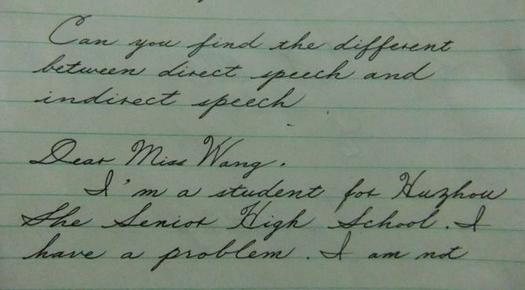 Can you find the different
between direct speech and
indirect speech
Dear Miss Wang.
I'm a student for Huzhou
She Senior High School. I
have a problem. I am not